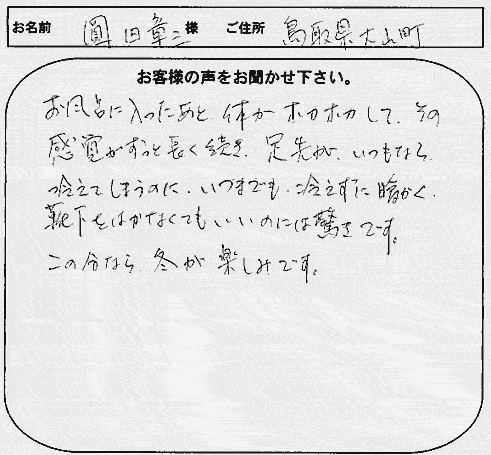 お名前 圓田章二 様 ご住所 鳥取県大山町
お客様の声をお聞かせ下さい。
お風呂に入ったあと、体がホカホカして、その
感覚がずっと長く続き、足先が、いつもなら、
冷えてしまうのに、いつまでも、冷えずに暖かく、
靴下をはかなくてもいいのには驚きです。
この分なら、冬が楽しみです。